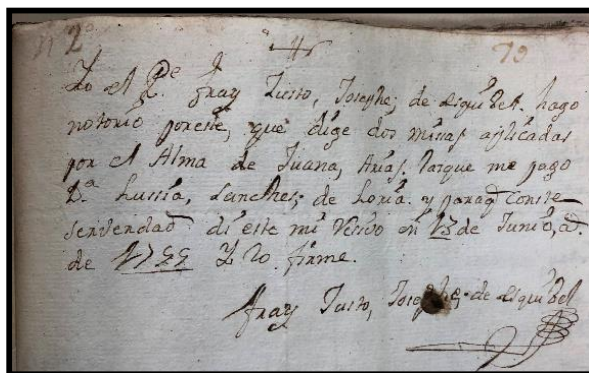 nº 2º 70
Yo el Pe. fray Justo, Josephe; de esquibel. hago
notorio poreste, que dige dos misas aplicadas
por el Alma de Juana, Arias. lasque me pago
Da. Lussia, Sanches; de Loria. y paraq conste
serverdad di este mi Resivo en 13 de Junio, a.
de 1755 Y lo firme.
fray Justo, Josephe de esquibel